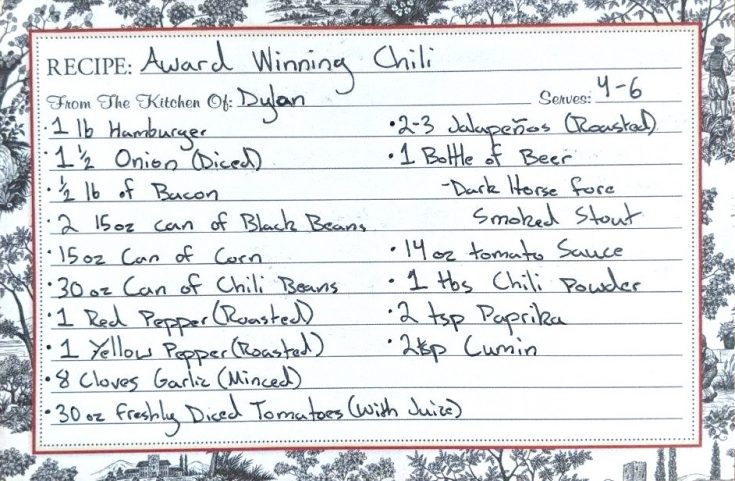 RECIPE: Award Winning Chili
From The Kitchen Of: Dylan Serves: 4-6
• 1 lb Hamburger
• 1 ½ Onion (Diced)
• ½ lb of Bacon
• 2 15oz can of Black Beans
• 15oz Can of Corn
• 30 oz Can of Chili Beans
• 1 Red Pepper (Roasted)
• 1 Yellow Pepper (Roasted)
• 8 Cloves Garlic (Minced)
• 30 oz Freshly Diced Tomatoes (with Juice)
• 2-3 Jalapeños (Roasted)
• 1 Bottle of Beer
- Dark Horse Fore
Smoked Stout
• 14 oz tomato Sauce
• 1 tbs Chili Powder
• 2 tsp Paprika
• 2 tsp Cumin